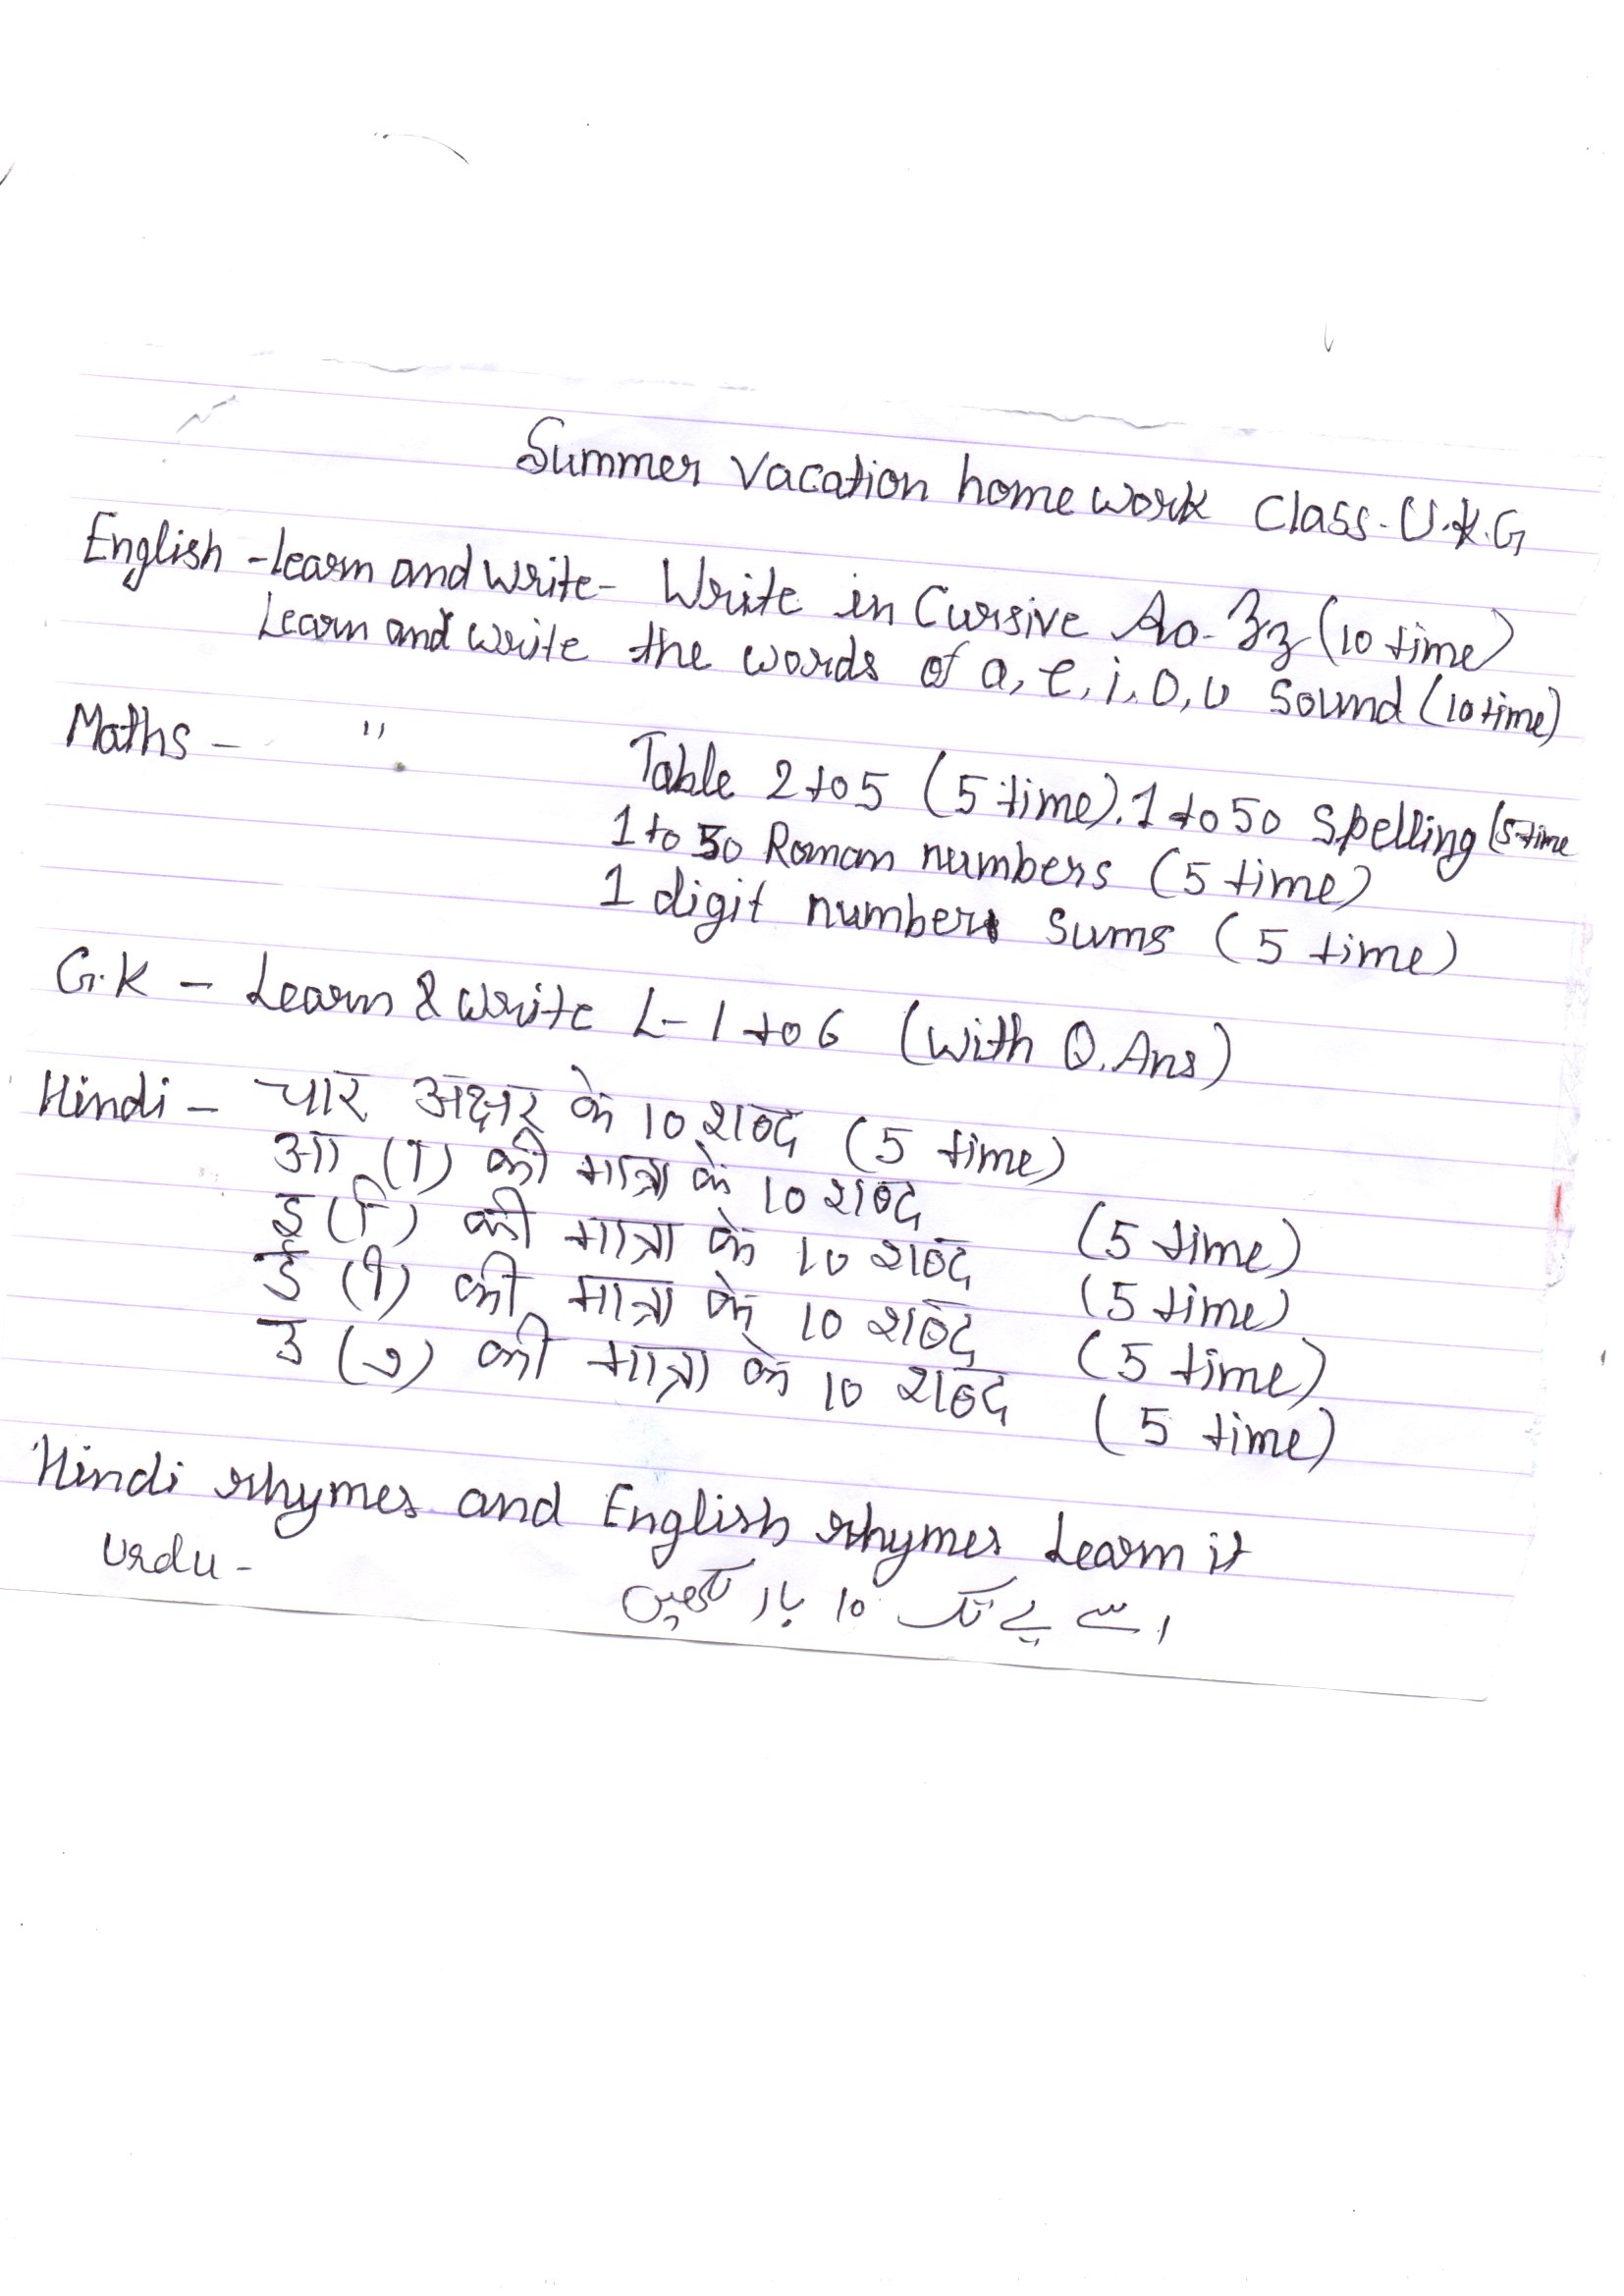 Summer Vacation home work Class-U.K.G
English -Learn and write- Write in Cursive Aa-Zz (10 time)
Learn and write the words of a, e, i, o, u Sound (10 time)
Maths - " Table 2 to 5 (5 time). 1 to 50 Spelling (5 time
1 to 50 Roman numbers (5 time)
1 digit numbers Sums (5 time)
G.K - Learn & write L-1 to 6 (with Q.Ans)
Hindi - चार अक्षर के 10 शब्द (5 time)
आ (ा) की मात्रा के 10 शब्द (5 time)
इ (ि) की मात्रा के 10 शब्द (5 time)
ई (ी) की मात्रा के 10 शब्द (5 time)
उ (ु) की मात्रा के 10 शब्द (5 time)
Hindi rhymes and English rhymes Learn it
Urdu - ا سے ے تک 10 بار لکھیں